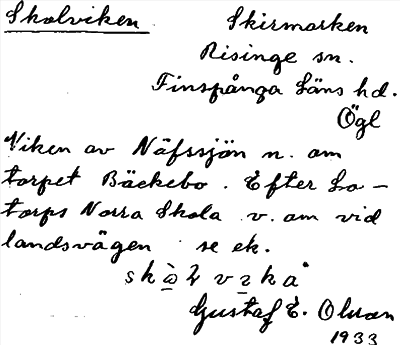 Skolviken Skirmarken
Risinge sn.
Finspånga Läns hd.
Ögl
Viken av Näfssjön n. om
torpet Bäckebo. Efter Lo-
torps Norra Skola v. om vid
landsvägen se ek.
Gustaf E. Olsson
1933